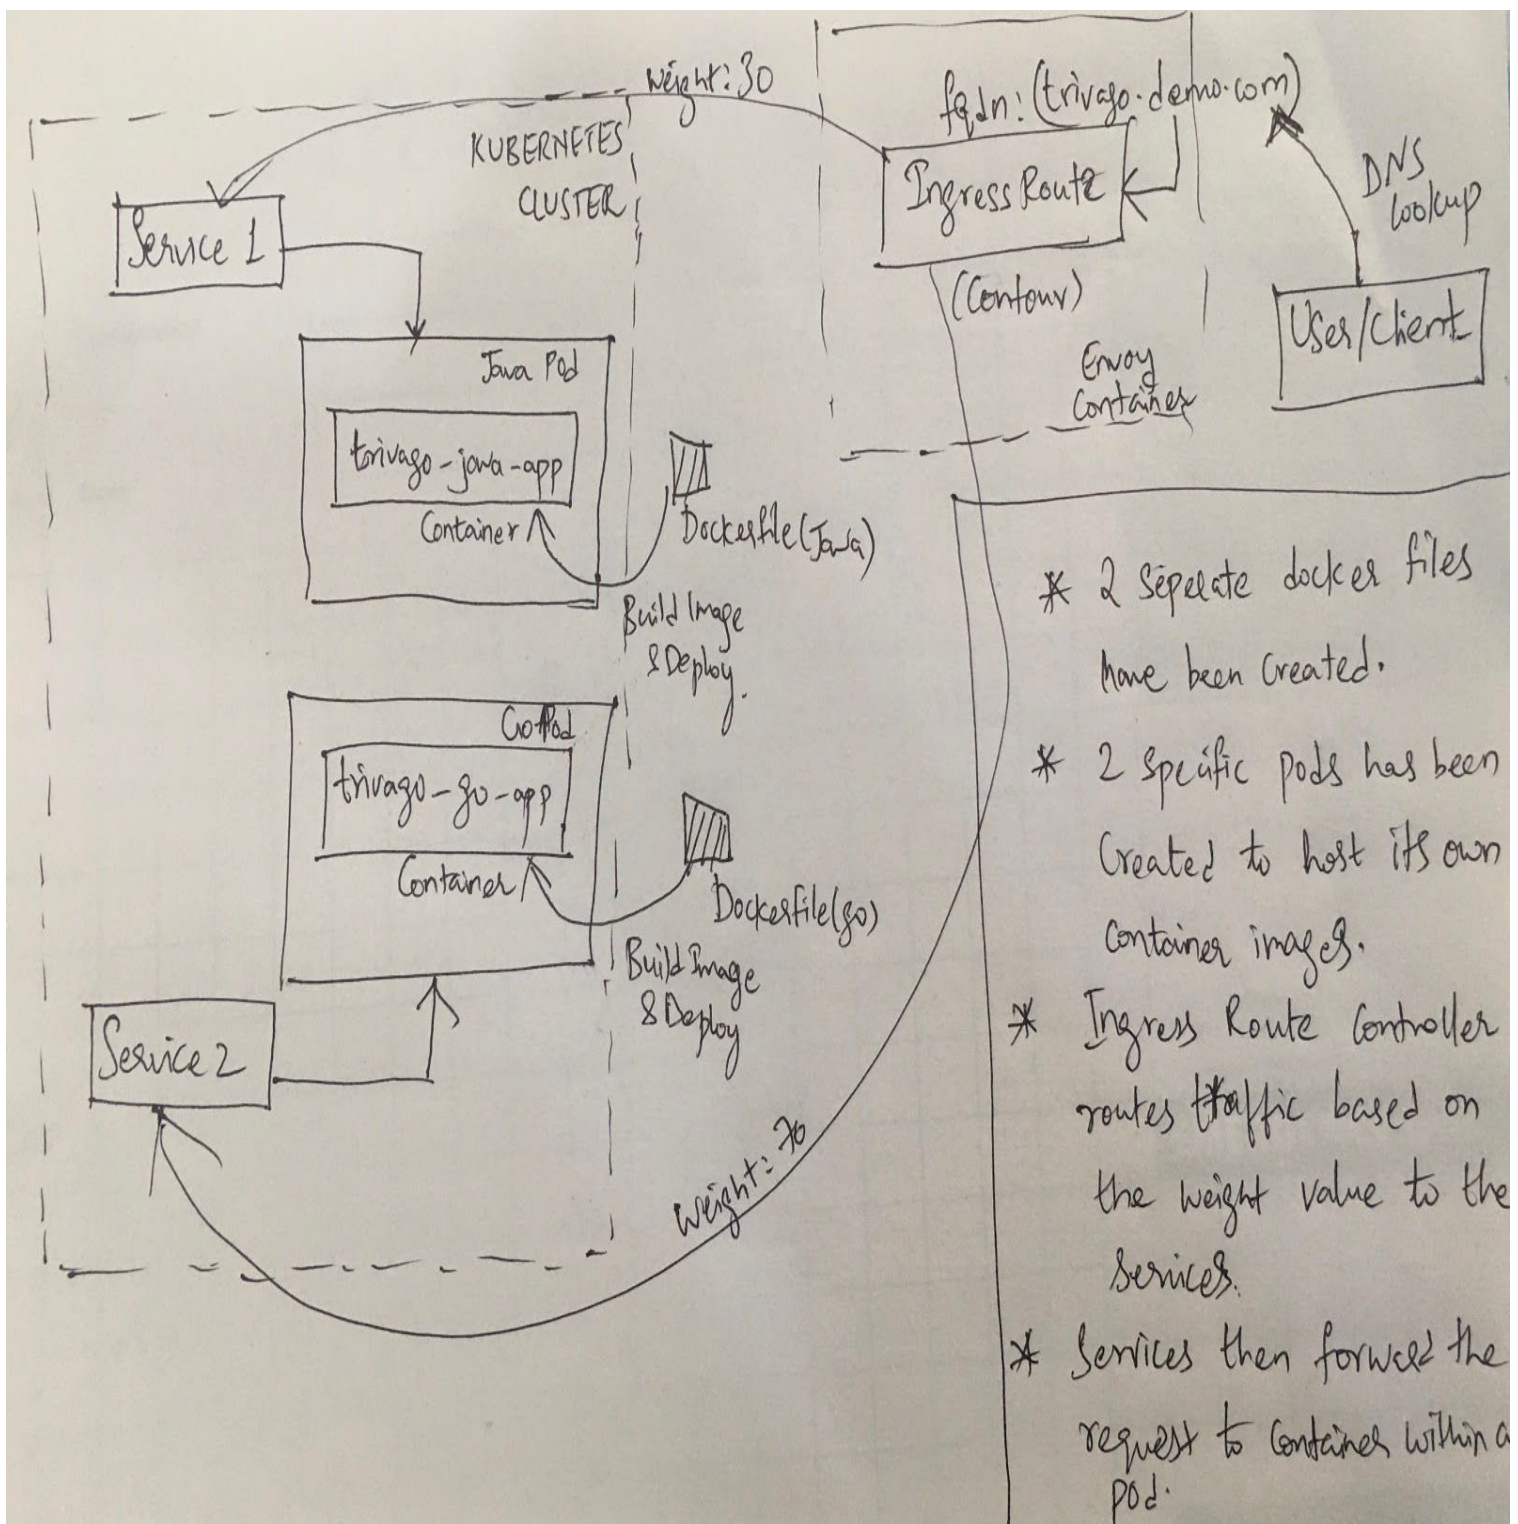 Weight: 30
fqdn: (trivago.demo.com)
KUBERNETES
CLUSTER
Ingress Route
DNS
lookup
Service 1
(Contour)
User/Client
Envoy
Container
Java Pod
trivago-java-app
Container
Dockerfile(Java)
Build Image
& Deploy.
Go Pod
trivago-go-app
Container
Dockerfile(go)
Build Image
& Deploy
Service 2
Weight: 70
* 2 Seperate docker files
have been Created.
* 2 Specific pods has been
Created to host its own
Container images.
* Ingress Route Controller
routes traffic based on
the weight value to the
Services.
* Services then forward the
request to Container within a
Pod.